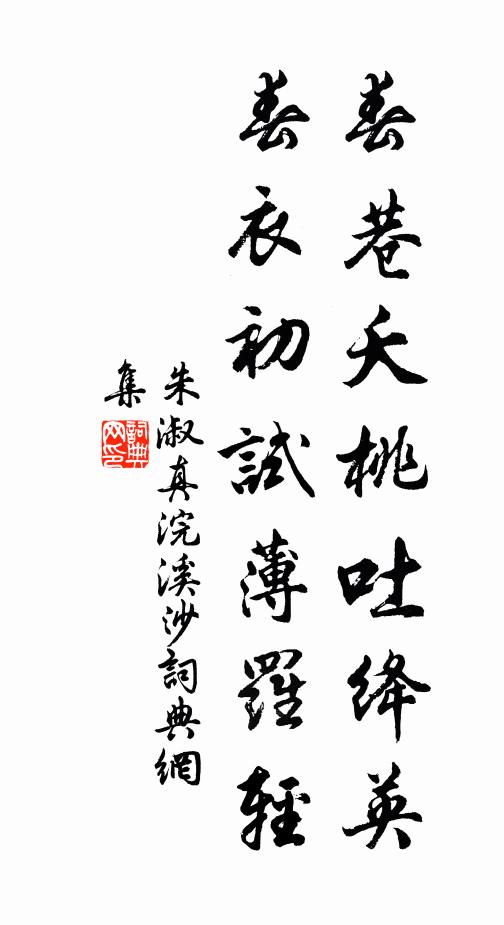 春巷夭桃吐絳英
春衣初試薄羅輕
朱淑真浣溪沙詞典網
集
詞典
网印